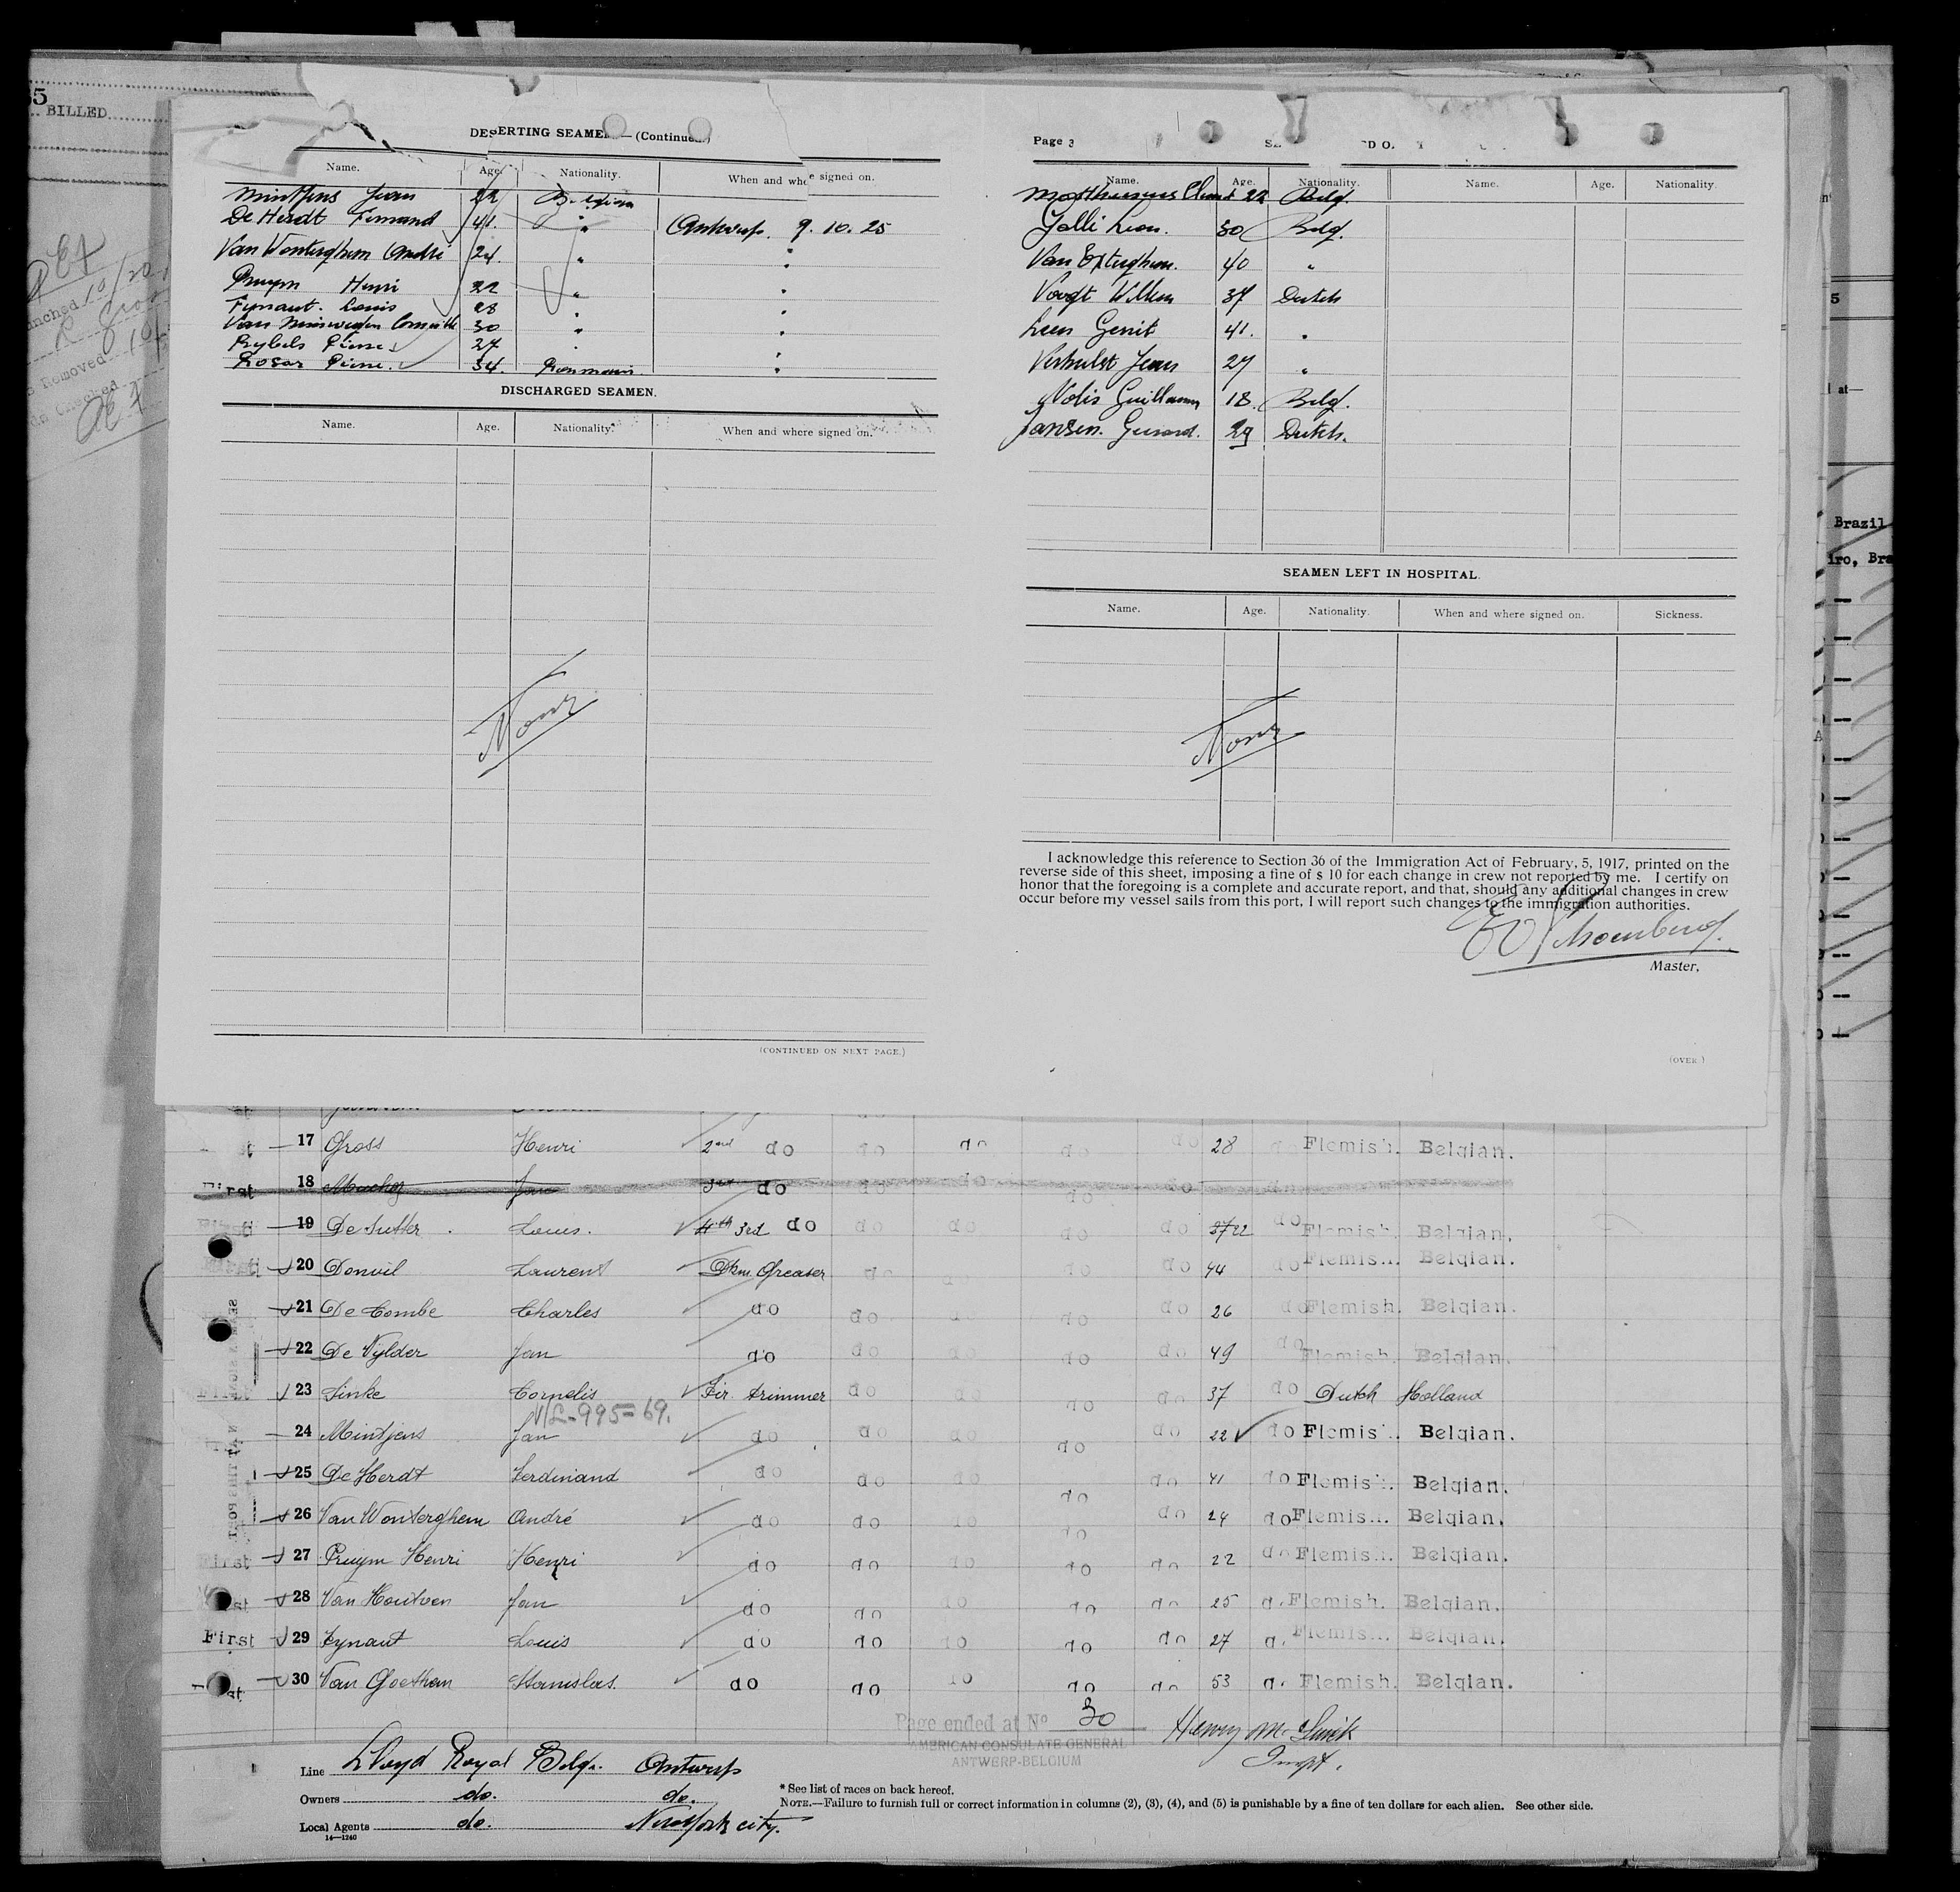 5
BILLED
DESERTING SEAMEN — (Continued)
Name. Age. Nationality. When and where signed on.
Mintjens Jean 22 Belgian
De Herdt Fernand 41. " Antwerp. 9. 10. 25
Van Wonterghem André 24. " "
Pruym Henri 22 " "
Fynaut. Louis 28 " "
Van 30 " "
Rybels Pierre 27 " "
Rosar Pierre. 34. "
DISCHARGED SEAMEN.
Name. Age. Nationality. When and where signed on.
None
(CONTINUED ON NEXT PAGE.)
Page 3
Name. Age. Nationality. Name. Age. Nationality.
22 Belg.
Jolli Leon. 30 Belg.
Van 40 "
Voogt Willem 37 Dutch
Leen Gerrit 41. "
Verhulst Jean 27 "
Nolis Guillaume 18. Belg.
Jansen. Gerard. 29 Dutch.
SEAMEN LEFT IN HOSPITAL.
Name. Age. Nationality. When and where signed on. Sickness.
None
I acknowledge this reference to Section 36 of the Immigration Act of February, 5, 1917, printed on the
reverse side of this sheet, imposing a fine of $ 10 for each change in crew not reported by me. I certify on
honor that the foregoing is a complete and accurate report, and that, should any additional changes in crew
occur before my vessel sails from this port, I will report such changes to the immigration authorities.
Master,
(OVER.)
5
at—
Brazil
iro, Bra
17 Gross Henri 2nd do do do do do 28 do Flemish. Belgian.
First 18 Jan 3rd do do do do do do
19 De Sutter Louis. 4th 3rd do do do do do 37 22 do Flemish. Belgian.
20 Donvil Laurent Dkm Greaser do do do do 44 do Flemish. Belgian.
21 De Combe Charles do do do do do 26 do Flemish. Belgian.
22 De Vylder Jan do do do do do 49 do Flemish. Belgian.
First 23 Sinke Cornelis Fir. trimmer do do do do 37 do Dutch Holland
VL-995=69.
24 Mintjens Jan do do do do do 22 do Flemish. Belgian.
25 De Herdt Ferdinand do do do do do 41 do Flemish. Belgian.
26 Van Wonterghem André do do do do do 24 do Flemish. Belgian.
First 27 Pruym Henri Henri do do do do do 22 do Flemish. Belgian.
28 Van Houtven Jan do do do do do 25 d. Flemish. Belgian.
First 29 Fynaut Louis do do do do do 27 d. Flemish. Belgian.
30 Van Goethem Stanislas. do do do do do 53 d. Flemish. Belgian.
Page ended at No 30
AMERICAN CONSULATE GENERAL
ANTWERP-BELGIUM
Henry
Inspt.
Line Lloyd Royal Belge. Antwerp
Owners do. do.
Local Agents do. New York city.
14—1240
* See list of races on back hereof.
NOTE.—Failure to furnish full or correct information in columns (2), (3), (4), and (5) is punishable by a fine of ten dollars for each alien. See other side.